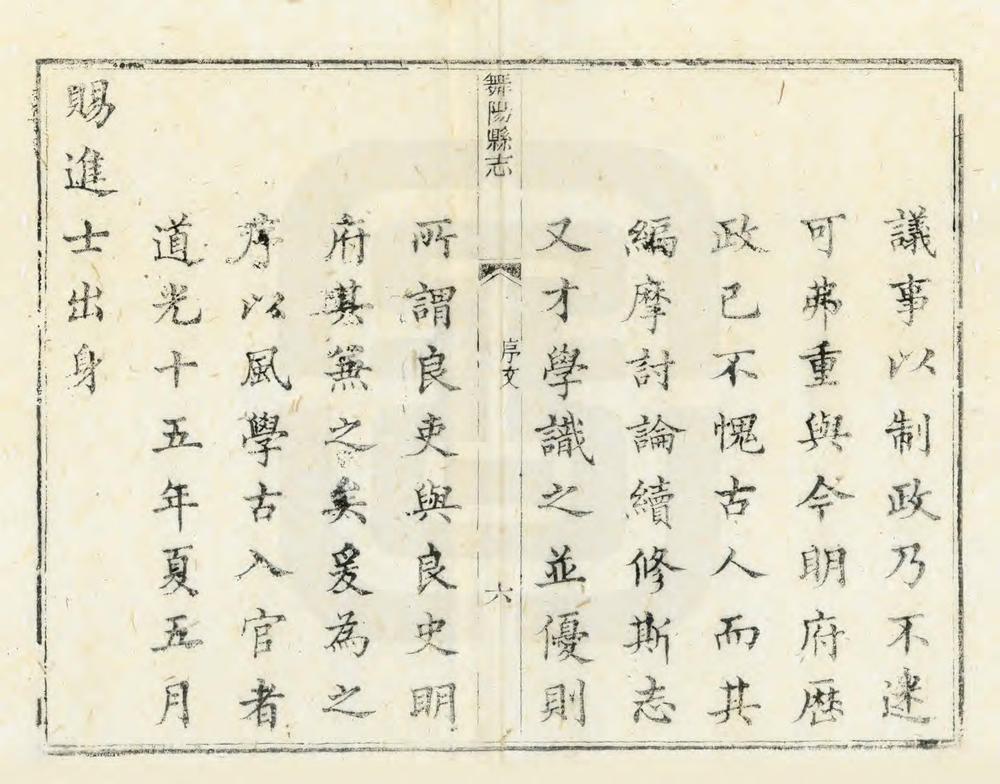 議事以制政乃不迷
可弗重與今明府歷
政已不愧古人而其
編摩討論續修斯志
又才學識之並優則
舞陽縣志
序文
六
所謂良吏與良史明
府其兼之矣爰為之
序以風學古入官者
道光十五年夏五月
賜進士出身